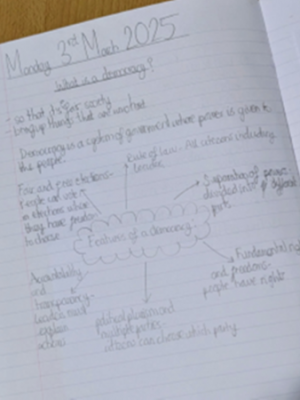 Monday 3rd March 2025
What is a democracy?
- so that it's fair society
- bring up things that can
Democracy is a system of government where power is given to
the people.
Fair and free elections-
People can vote in
in elections where
they have freedom
to choose
Rule of law- All citizens including
Separation of power-
divided into
parts
Features of a democracy
Accountability
and
transparency-
explain
actions
political pluralism and
multiple parties-
citizens can choose which party.
Fundamental
and freedoms-
people have rights